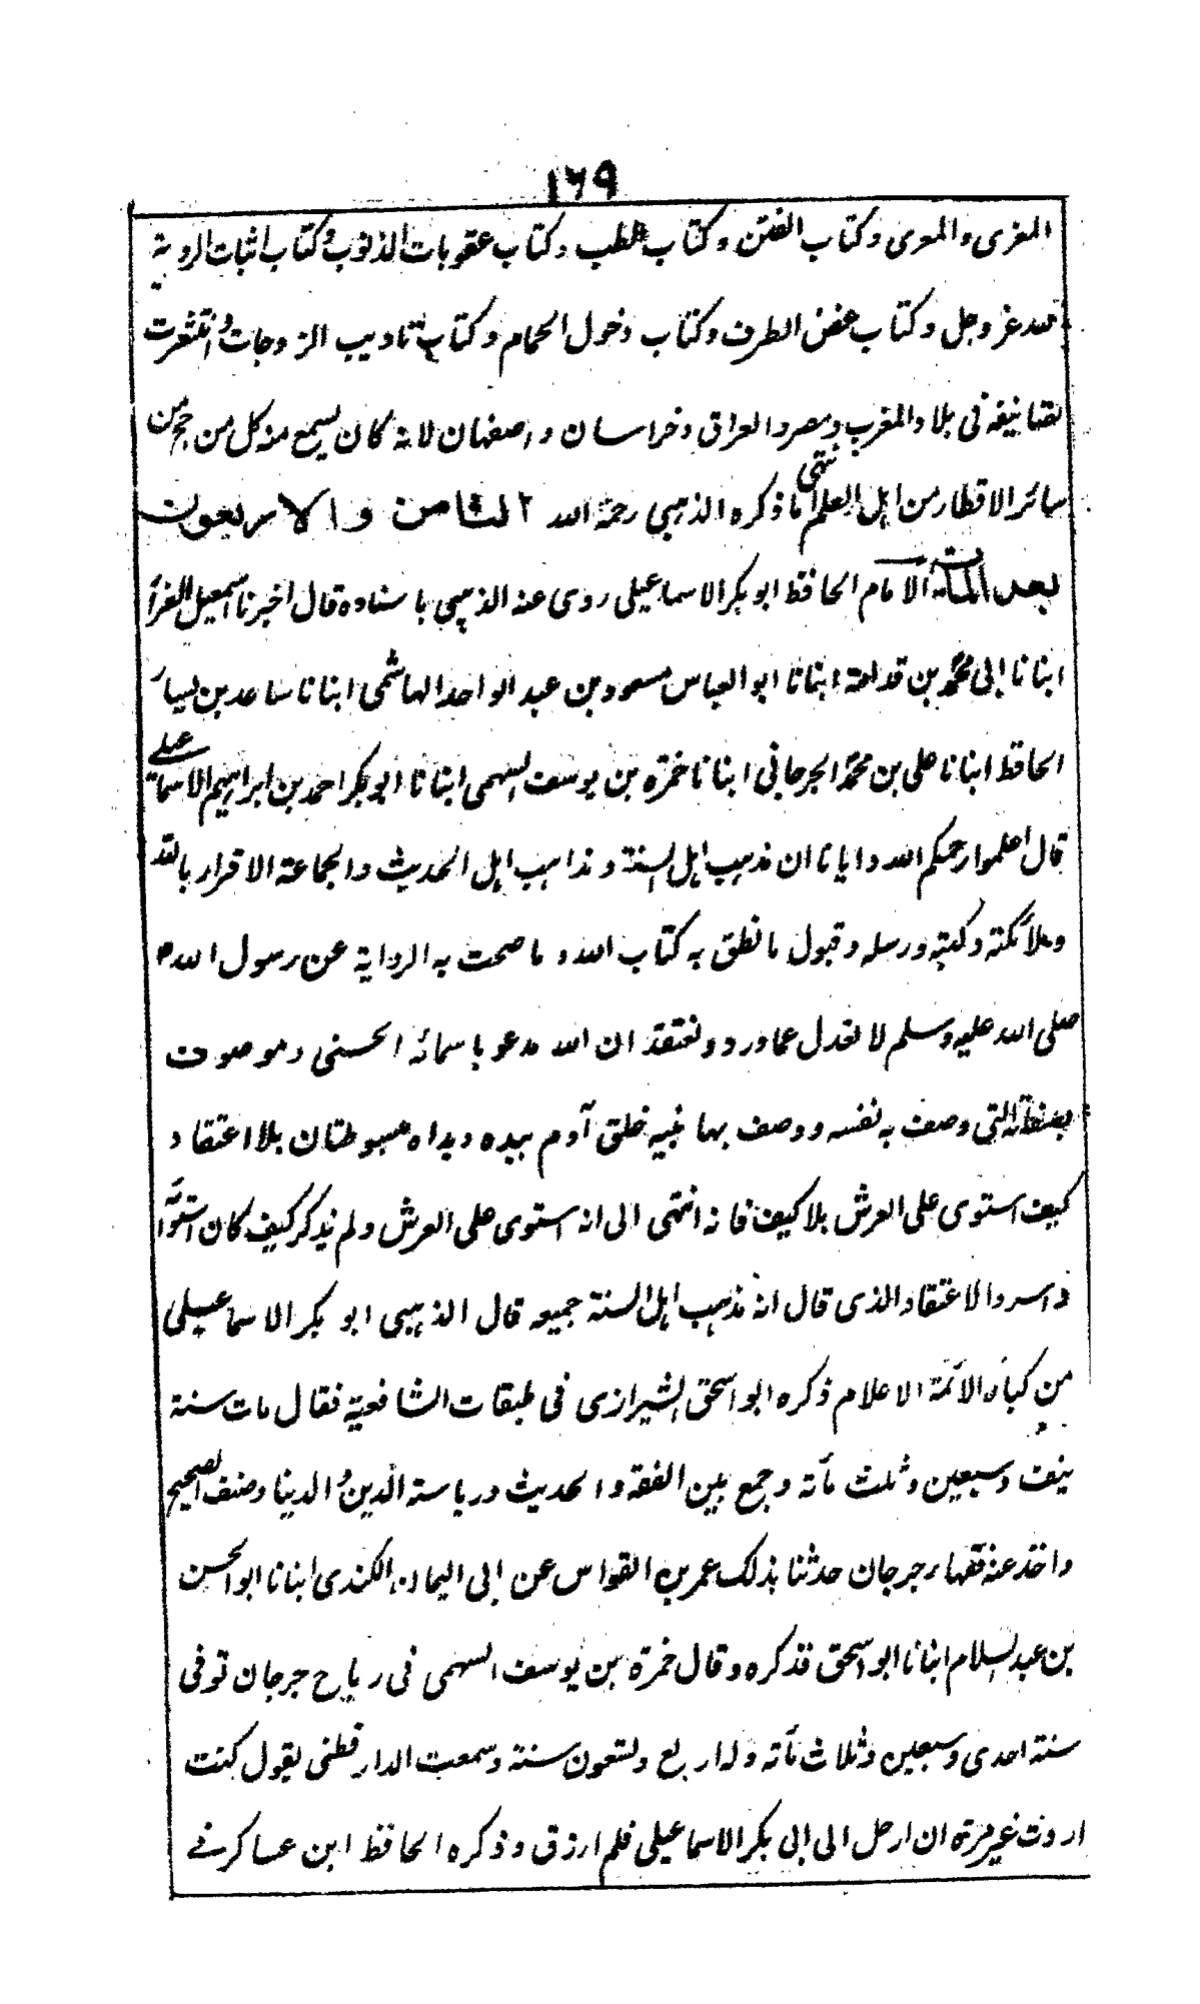 ١٦٩
المعزى والمعرى وكتاب الفتن وكتاب الطب وكتاب عقوبات الذنوب وكتاب اثبات الروية
لله عز وجل وكتاب غض الطرف وكتاب دخول الحمام وكتاب تاديب الزوجات وانتشرت
تصانيفه فى بلاد المغرب ومصر والعراق وخراسان واصفهان لانه كان يسمع منه كل من حج من
سائر الاقطار من اهل العلم انتهى ما ذكره الذهبي رحمة الله ٢ الثامن والاربعون
بعد المائة الامام الحافظ ابو بكر الاسماعيلى روى عنه الذهبي باسناده قال اخبرنا اسمعيل الفرا
انبانا ابى محمد بن قدامة انبانا ابو العباس مسعود بن عبد الواحد الهاشمى انبانا ساعد بن يسار
الحافظ انبانا على بن محمد الجرجانى انبانا حمزة بن يوسف السهمى انبانا ابو بكر احمد بن ابراهيم الاسماعيلے
قال اعلموا رحمكم الله وايانا ان مذهب اهل السنة ومذاهب اهل الحديث والجماعة الاقرار بالله
وملائكته وكتبه ورسله وقبول ما نطق به كتاب الله وما صحت به الرواية عن رسول الله
صلى الله عليه وسلم لا نعدل عما ورد ونعتقد ان الله مدعو باسمائه الحسنى وموصوف
بصفاته التى وصف به نفسه ووصف بها نبيه خلق آدم بيده ويداه مبسوطتان بلا اعتقاد
كيف استوى على العرش بلا كيف فانه انتهى الى انه استوى على العرش ولم يذكر كيف كان استواؤ
ذا سرد الاعتقاد الذى قال انه مذهب اهل السنة جميعه قال الذهبي ابو بكر الاسماعيلى
من كبار الائمة الاعلام ذكره ابو اسحق الشيرازى فى طبقات الشافعية فقال مات سنة
نيف وسبعين وثلث مأته وجمع بين الفقه والحديث ورياسة الدين والدينا وصنف الصحيح
واخذ عنه فقهاء جرجان حدثنا بذلك عمر بن القواس عن ابى اليمان الكندى انبانا ابو الحسن
بن عبد السلام انبانا ابو اسحق فذكره وقال حمزة بن يوسف السهمى فى رياح جرجان توفى
سنة احدى وسبعين وثلاث مأته وله اربع وتسعون سنة وسمعت الدارقطنى يقول كنت
اردت غير مرة ان ارحل الى ابى بكر الاسماعيلى فلم ارزق وذكره الحافظ ابن عساكر فے